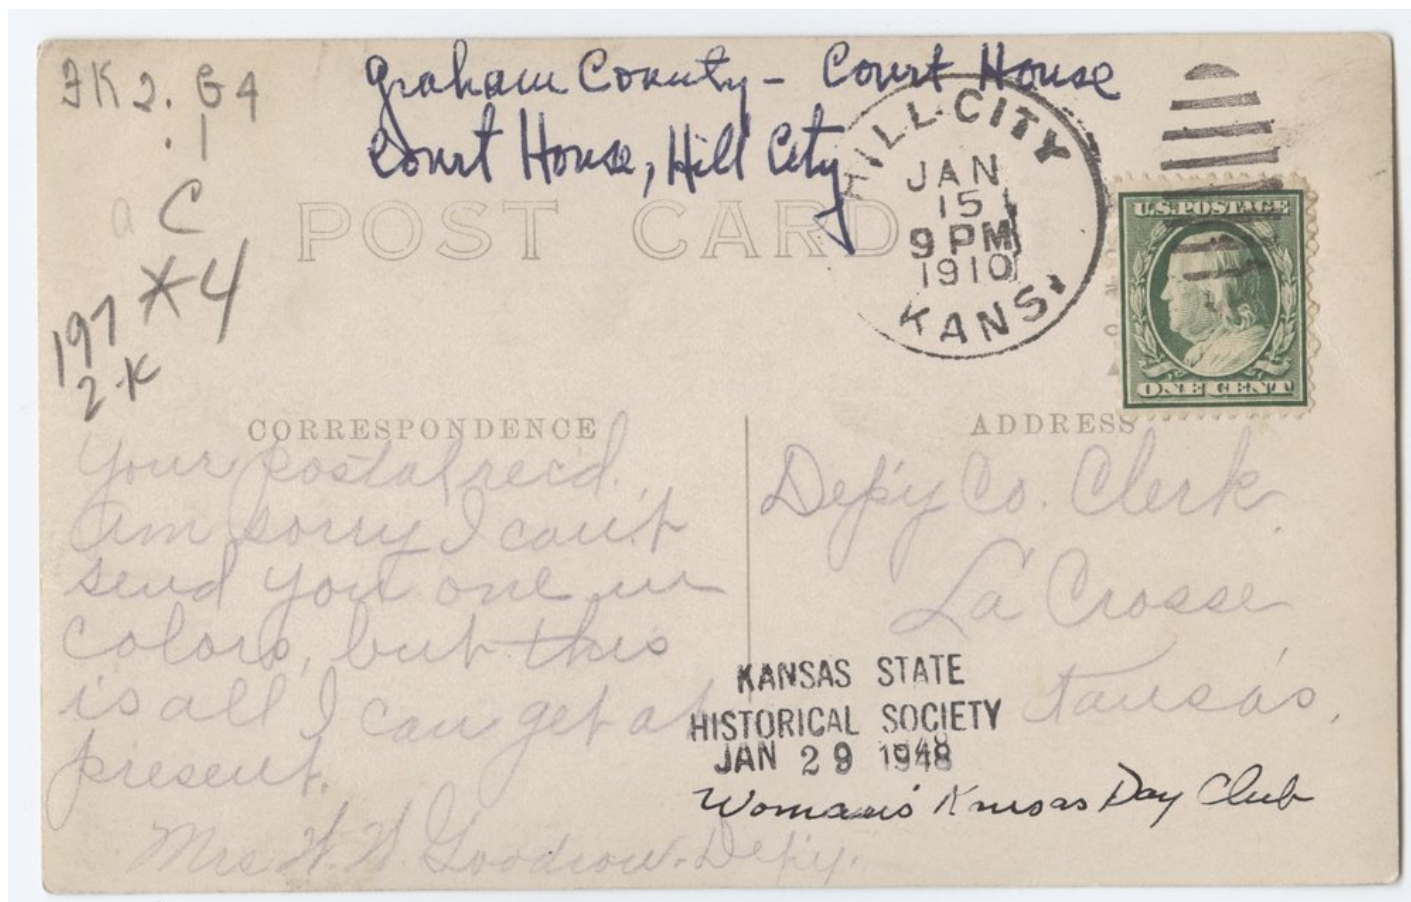 FK2. G4
.1
a C
*4
197
2K
Graham County - Court House
Court House, Hill City
POST CARD
HILL CITY
JAN
15
9 PM
1910
KANS.
U.S. POSTAGE
ONE CENT
CORRESPONDENCE
Your postal rec'd.
Am sorry I can't
send you one in
colors, but this
is all I can get at
present.
Mrs. W. W. Goodrow. Dep'y.
ADDRESS
Dep'y Co. Clerk.
La Crosse
Kansas.
KANSAS STATE
HISTORICAL SOCIETY
JAN 29 1948
Woman's Kansas Day Club